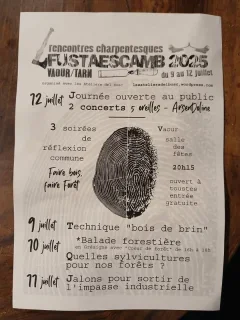 rencontres charpentesques
FUSTAESCAMB 2025
VAOUR/TARN
du 9 au 12 juillet
12 juillet Journée ouverte au public
2 concerts 5 oreilles - ArsenDoline
3 soirées
de
réflexion
commune
Faire bois,
faire Forêt
Vaour
salle
des
fêtes
20h15
ouvert à
toustes
entrée
gratuite
9 juillet Technique "bois de brin"
10 juillet *Balade forestière
en Grésigne avec "Cœur de forêt" de 14h à 18h
Quelles sylvicultures
pour nos forêts ?
11 juillet Jalons pour sortir de
l'impasse industrielle